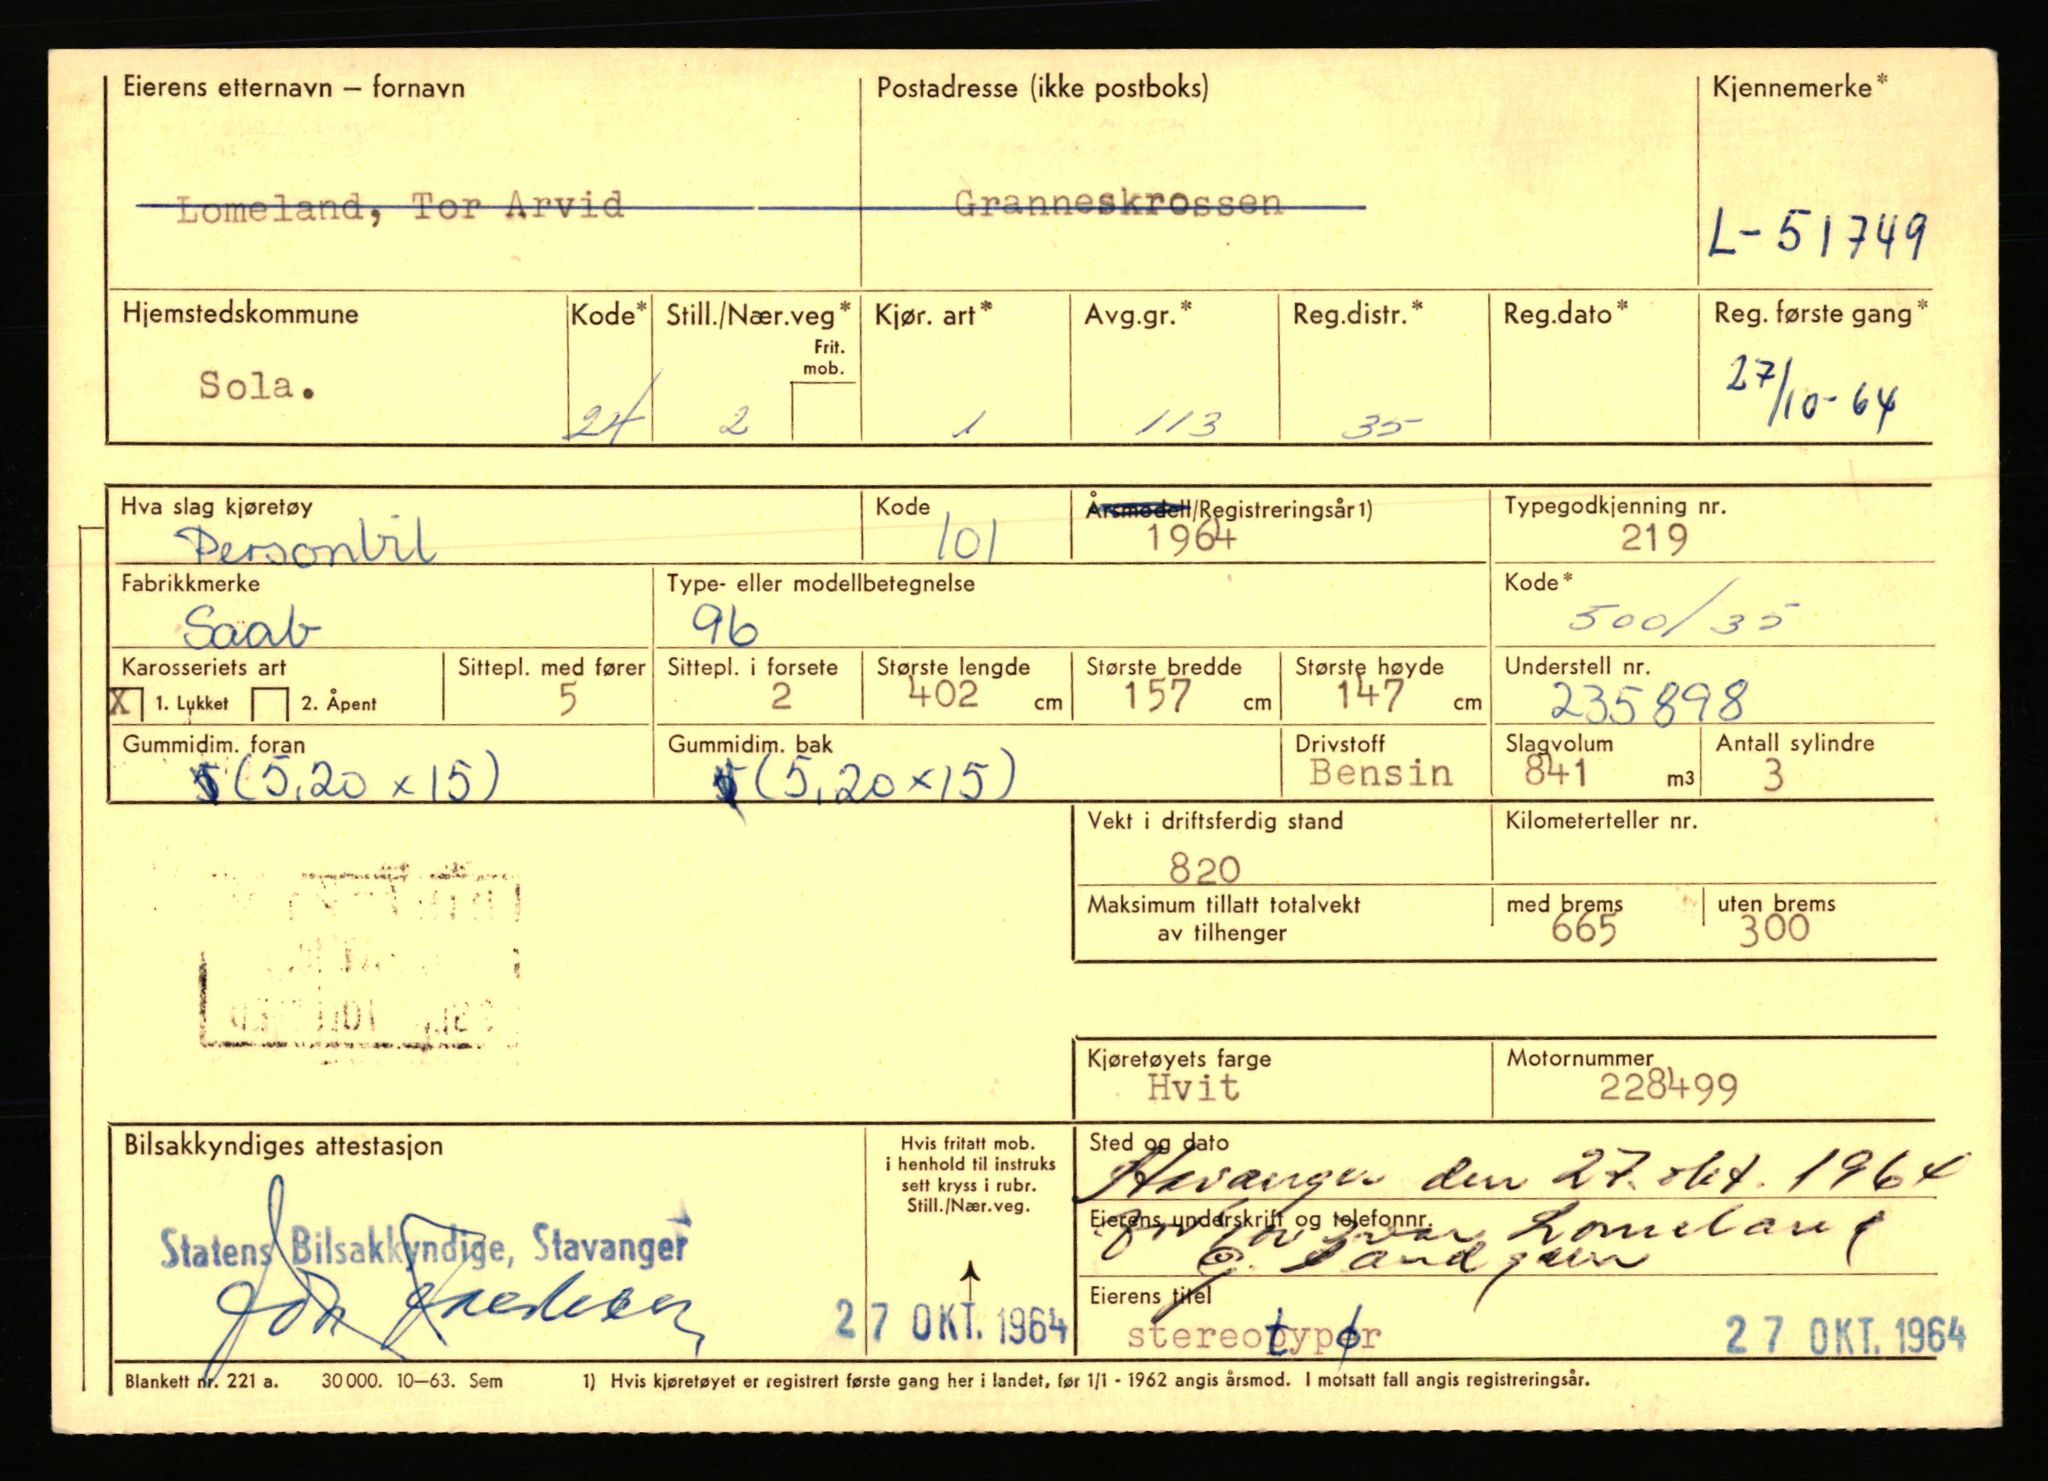 Eierens etternavn – fornavn Postadresse (ikke postboks) Kjennemerke*
Lomeland, Tor Arvid Granneskrossen
L-51749
Hjemstedskommune Kode* Still./Nær.veg* Kjør. art* Avg.gr.* Reg.distr.* Reg.dato* Reg. første gang*
Frit. mob.
Sola. 24 2 1 113 35 27/10-64
Hva slag kjøretøy Kode Årsmodell/Registreringsår1) Typegodkjenning nr.
Personbil 101 1964 219
Fabrikkmerke Type- eller modellbetegnelse Kode*
Saab 96 500/35
Karosseriets art Sittepl. med fører Sittepl. i forsete Største lengde Største bredde Største høyde Understell nr.
X 1. Lukket 2. Åpent 5 2 402 cm 157 cm 147 cm 235898
Gummidim. foran Gummidim. bak Drivstoff Slagvolum Antall sylindre
(5,20 x 15) (5,20 x 15) Bensin 841 m3 3
Vekt i driftsferdig stand Kilometerteller nr.
820
Maksimum tillatt totalvekt med brems uten brems
av tilhenger 665 300
Kjøretøyets farge Motornummer
Hvit 228499
Bilsakkyndiges attestasjon Hvis fritatt mob. Sted og dato
i henhold til instruks
sett kryss i rubr.
Still./Nær.veg.
Stavanger den 27. okt. 1964
Eierens underskrift og telefonnr.
for Lomeland
Statens Bilsakkyndige, Stavanger
Eierens titel
27 OKT. 1964 stereotypør 27 OKT. 1964
Blankett nr. 221 a. 30000. 10–63. Sem 1) Hvis kjøretøyet er registrert første gang her i landet, før 1/1 - 1962 angis årsmod. I motsatt fall angis registreringsår.